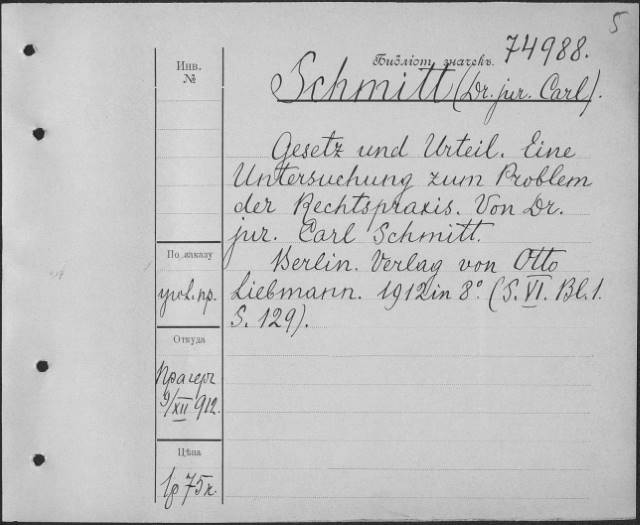 5
Библіот. значекъ. 74988.
Schmitt (Dr. jur. Carl).
Инв.
№
Gesetz und Urteil. Eine
Untersuchung zum Problem
der Rechtspraxis. Von Dr.
jur. Carl Schmitt.
Berlin. Verlag von Otto
Liebmann. 1912 in 8º. (S. VI. Bl. 1.
S. 129).
По заказу
угол. пр.
Откуда
Прагеръ
9/XII 912.
Цѣна
1р 75к.